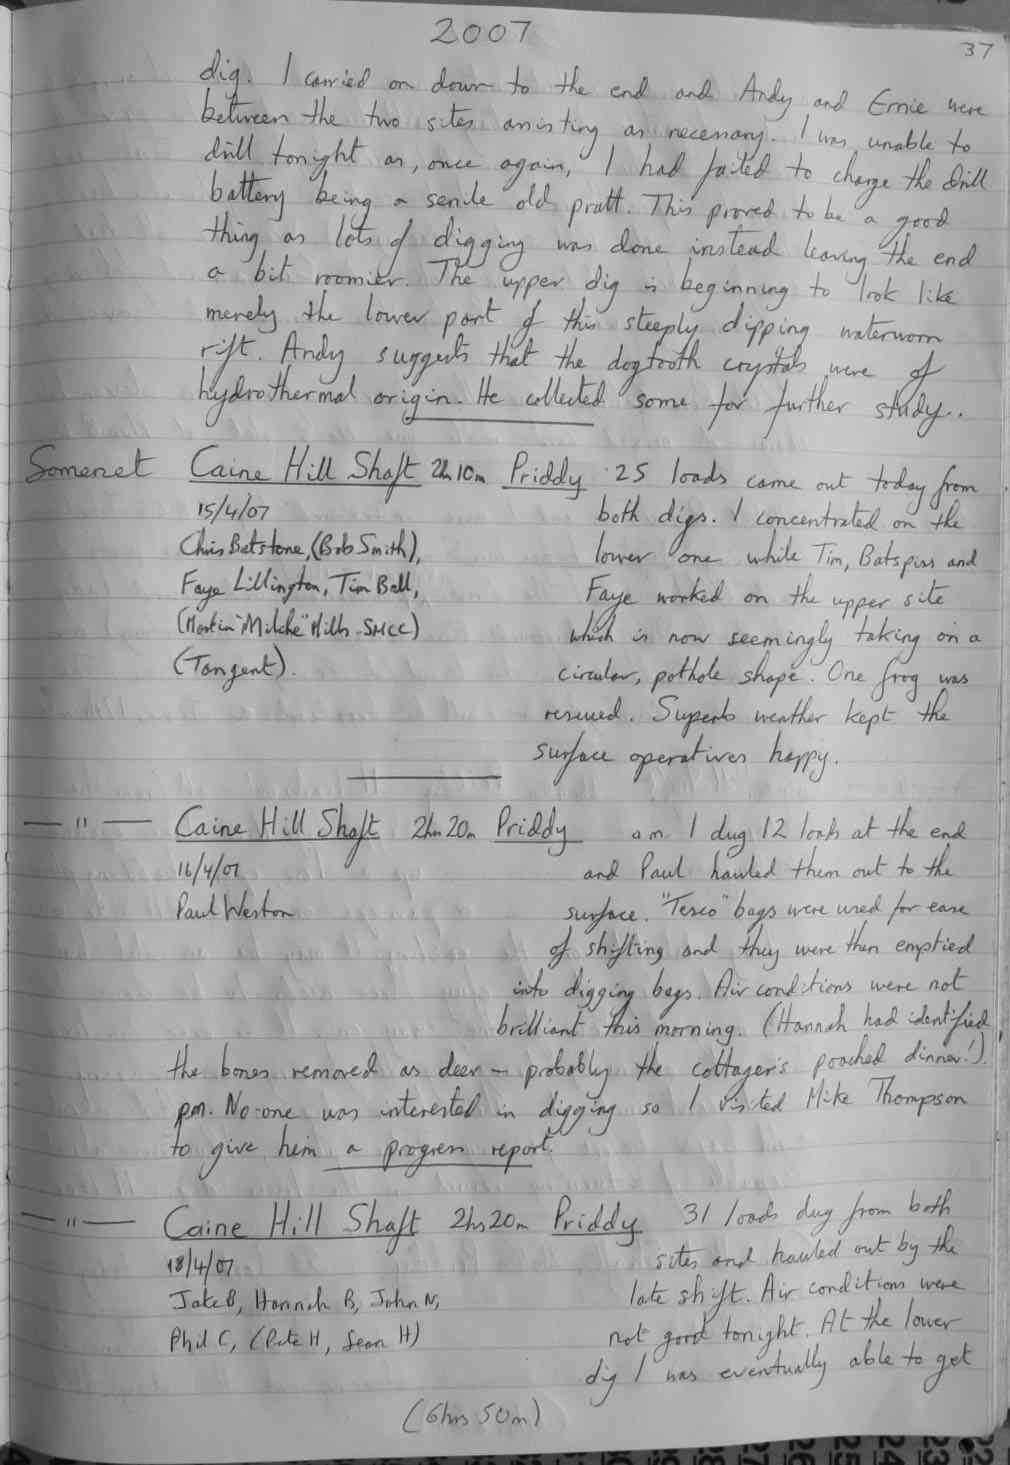 2007
37
dig. I carried on down to the end and Andy and Ernie were
between the two sites assisting as necessary. I was unable to
drill tonight as, once again, I had failed to charge the drill
battery being a senile old pratt. This proved to be a good
thing as lots of digging was done instead leaving the end
a bit roomier. The upper dig is beginning to look like
merely the lower part of this steeply dipping waterworn
rift. Andy suggests that the dogtooth crystals were of
hydrothermal origin. He collected some for further study..
Somerset Caine Hill Shaft 2h 10m Priddy 25 loads came out today from
15/4/07 both digs. I concentrated on the
Chris Batstone, (Bob Smith), lower one while Tim, Batspiss and
Faye Lillington, Tim Ball, Faye worked on the upper site
(Martin "Milche" Mills - SMCC) which is now seemingly taking on a
(Tangent). circular, pothole shape. One frog was
rescued. Superb weather kept the
surface operatives happy.
— " — Caine Hill Shaft 2hrs 20m Priddy am. I dug 12 loads at the end
16/4/07 and Paul hauled them out to the
Paul Weston surface. "Tesco" bags were used for ease
of shifting and they were then emptied
into digging bags. Air conditions were not
brilliant this morning. (Hannah had identified
the bones removed as deer - probably the cottager's poached dinner!).
pm. No-one was interested in digging so I visited Mike Thompson
to give him a progress report.
— " — Caine Hill Shaft 2hrs 20m Priddy 31 loads dug from both
18/4/07 sites and hauled out by the
Jake B, Hannah B, John N, late shift. Air conditions were
Phil C, (Pete H, Sean H) not good tonight. At the lower
dig I was eventually able to get
(6hrs 50m)